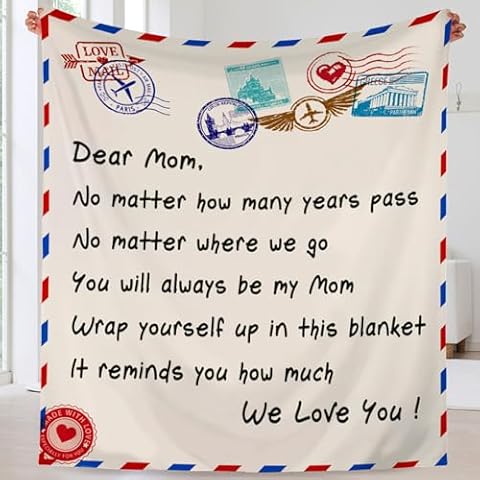 LOVE
MAIL
PARIS
GREECE
Dear Mom,
No matter how many years pass
No matter where we go
You will always be my Mom
Wrap yourself up in this blanket
It reminds you how much
We Love You !
MADE WITH LOVE
ESPECIALLY FOR YOU